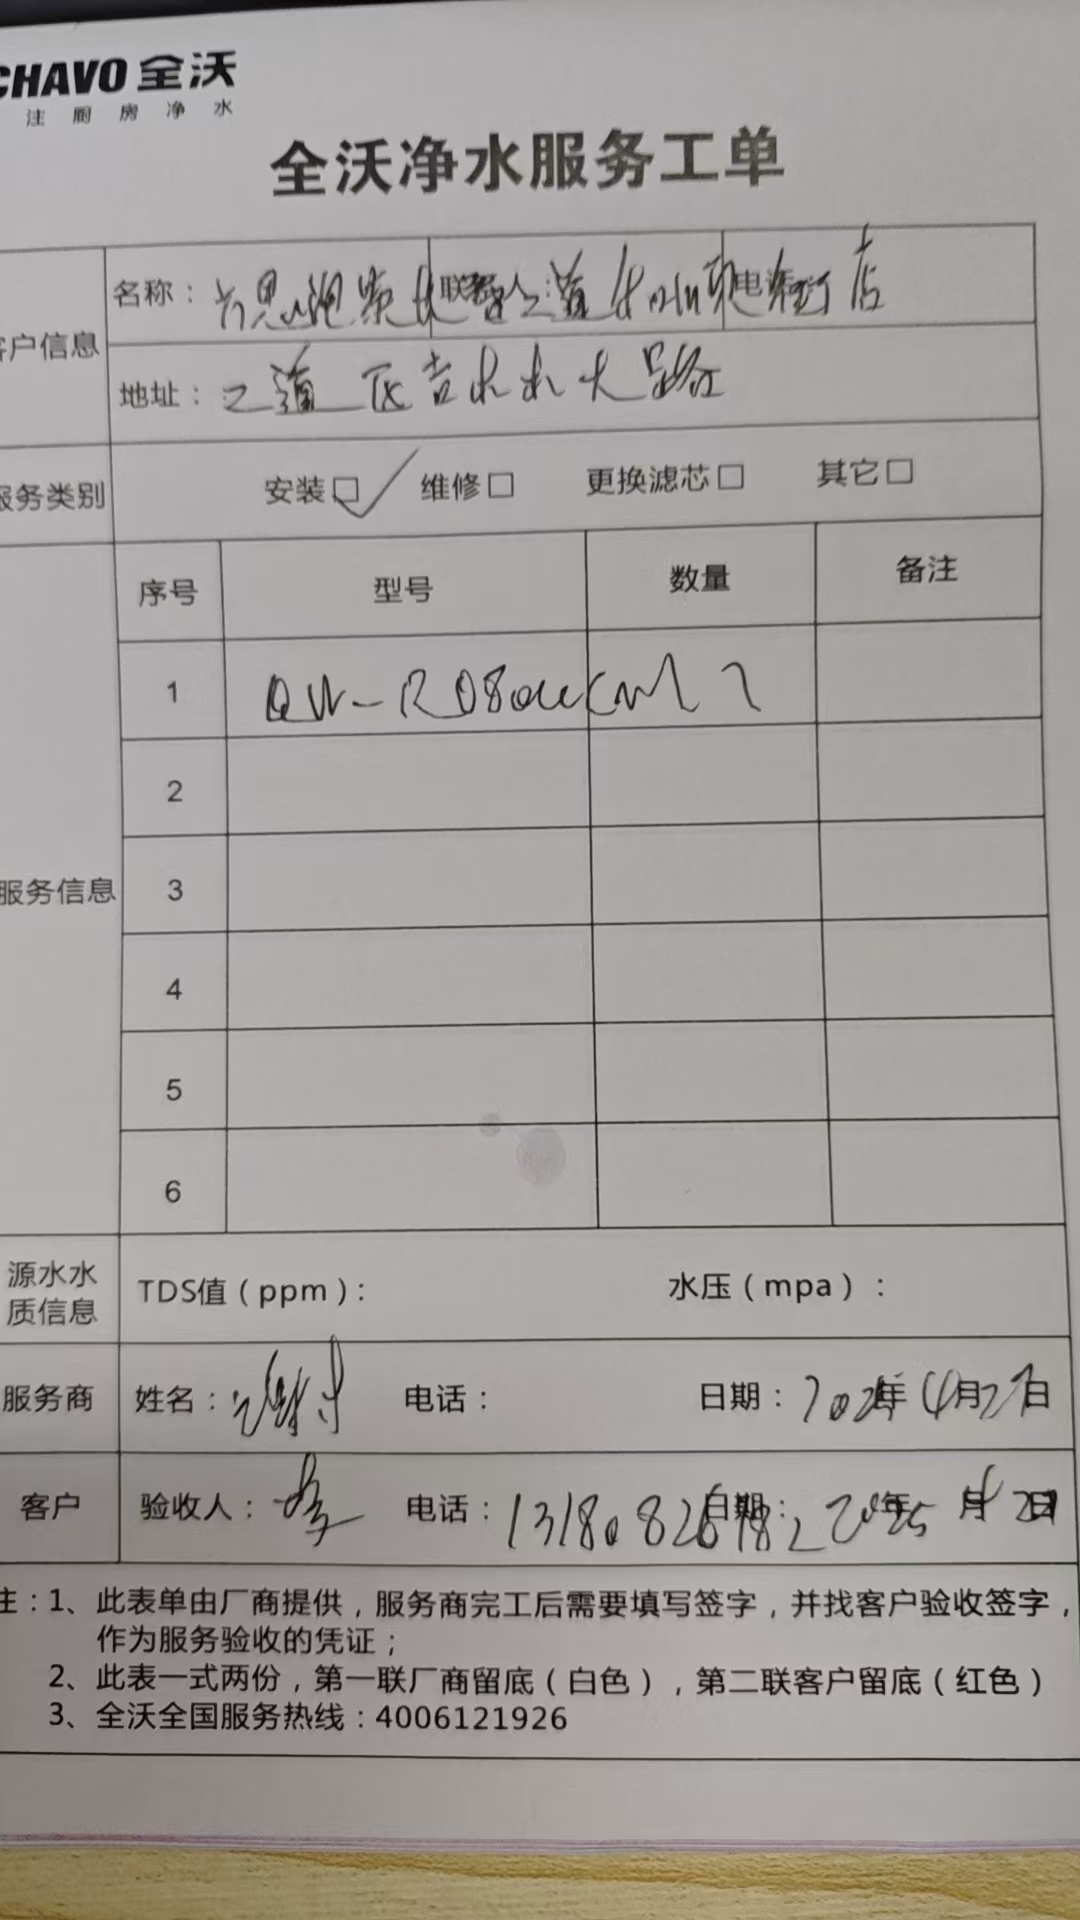 CHAVO 全沃
注厨房净水
全沃净水服务工单
客户信息
名称： 联系人： 电话： 店
地址： 二道区吉林大路
服务类别
安装□ ✓ 维修□ 更换滤芯□ 其它□
服务信息
序号 型号 数量 备注
1 QW-RO800
2
3
4
5
6
源水水质信息
TDS值（ppm）： 水压（mpa）：
服务商 姓名： 电话： 日期： 年4月27日
客户 验收人： 电话： 日期： 2025年4月 日
注：1、此表单由厂商提供，服务商完工后需要填写签字，并找客户验收签字，
作为服务验收的凭证；
2、此表一式两份，第一联厂商留底（白色），第二联客户留底（红色）
3、全沃全国服务热线：4006121926